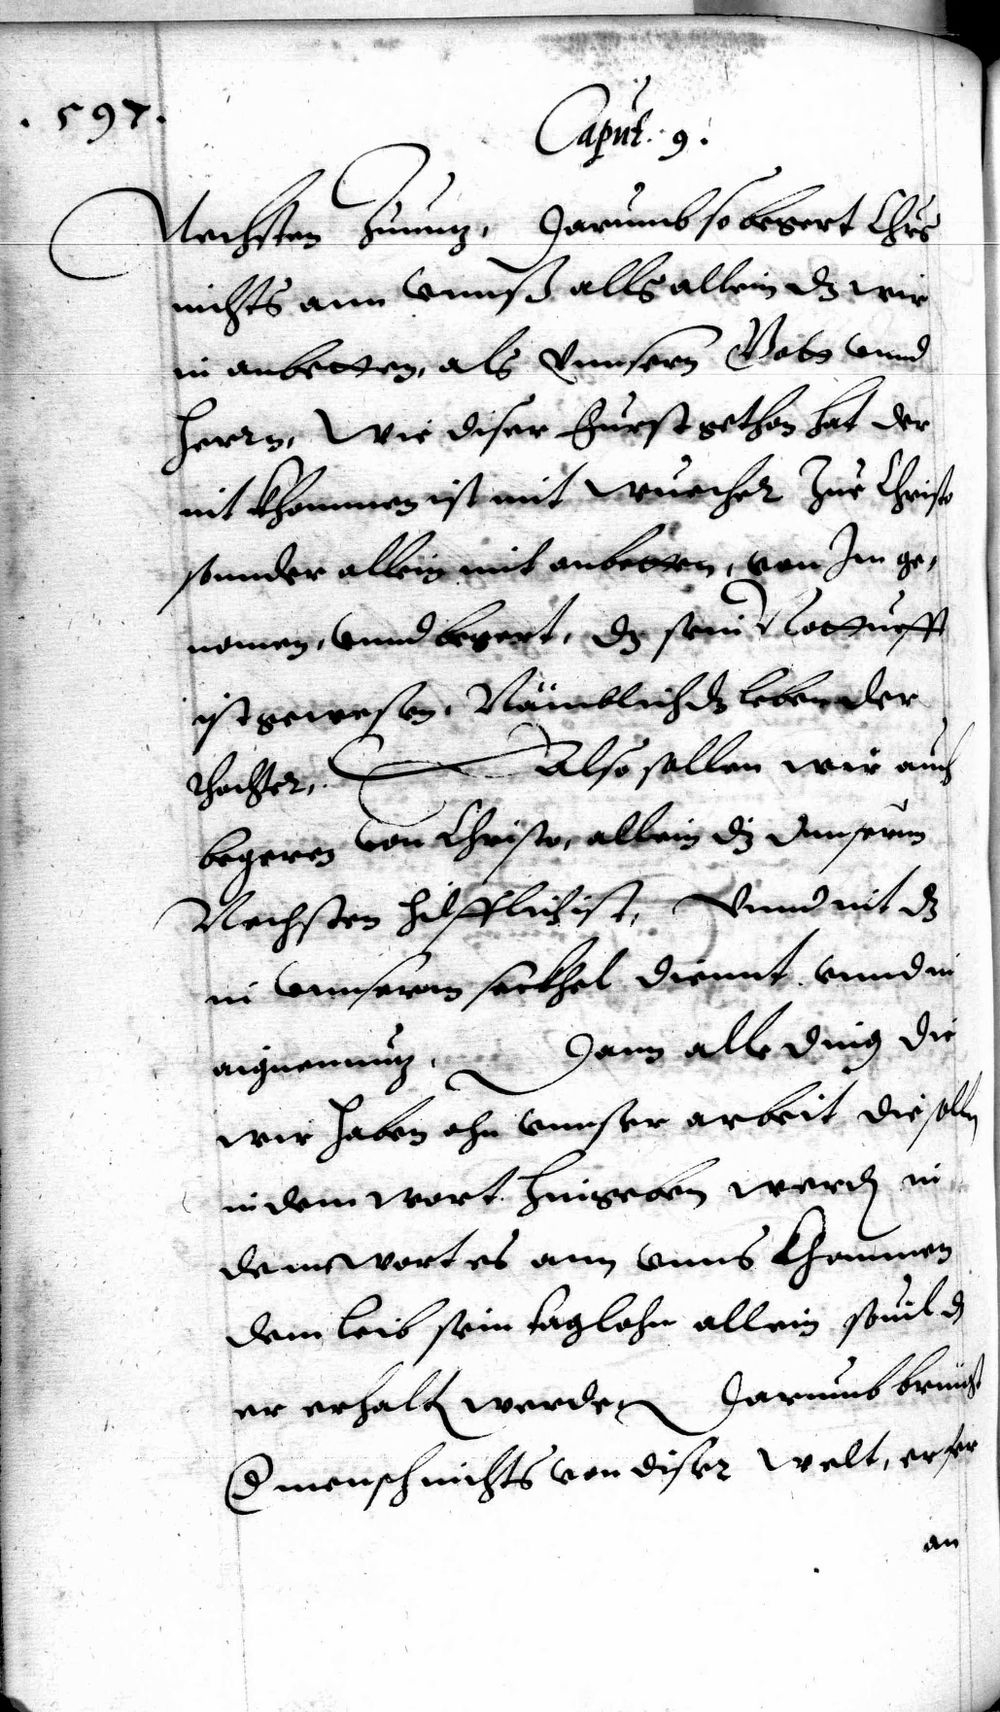 . 597 .
Caput. 9.
Nechsten zunutz, Darumb so begert Chrs
nichts ann vnnß alls allein dz wir
in anbetten, als vnnsern Gott vnnd
herrn, Wie diser Furst gethon hat der
nit khommen ist mit wuecher Zue Christo
sonnder allein mit anbetten, von Im ge,
nomen, vnnd begert, dz sein Nottufft
ist gewesen, Nämblich dz leben der
thochter, Also sollen wir auch
begeren von Christo, allein dz vnnserm
Nechsten hilfflich ist, Vnnd nit dz
in vnnserm sekhel diennt vnnd in
aignennutz, Dann alle ding die
wir haben ohn vnnser arbeit die solln
in dem wort hingeben werdn in
dem wort es ann vnns khommen
dem leib sein taglohn allein souil dz
er erhaltn werden Darumb bringt
D mensch nichts von diser Welt, er
an